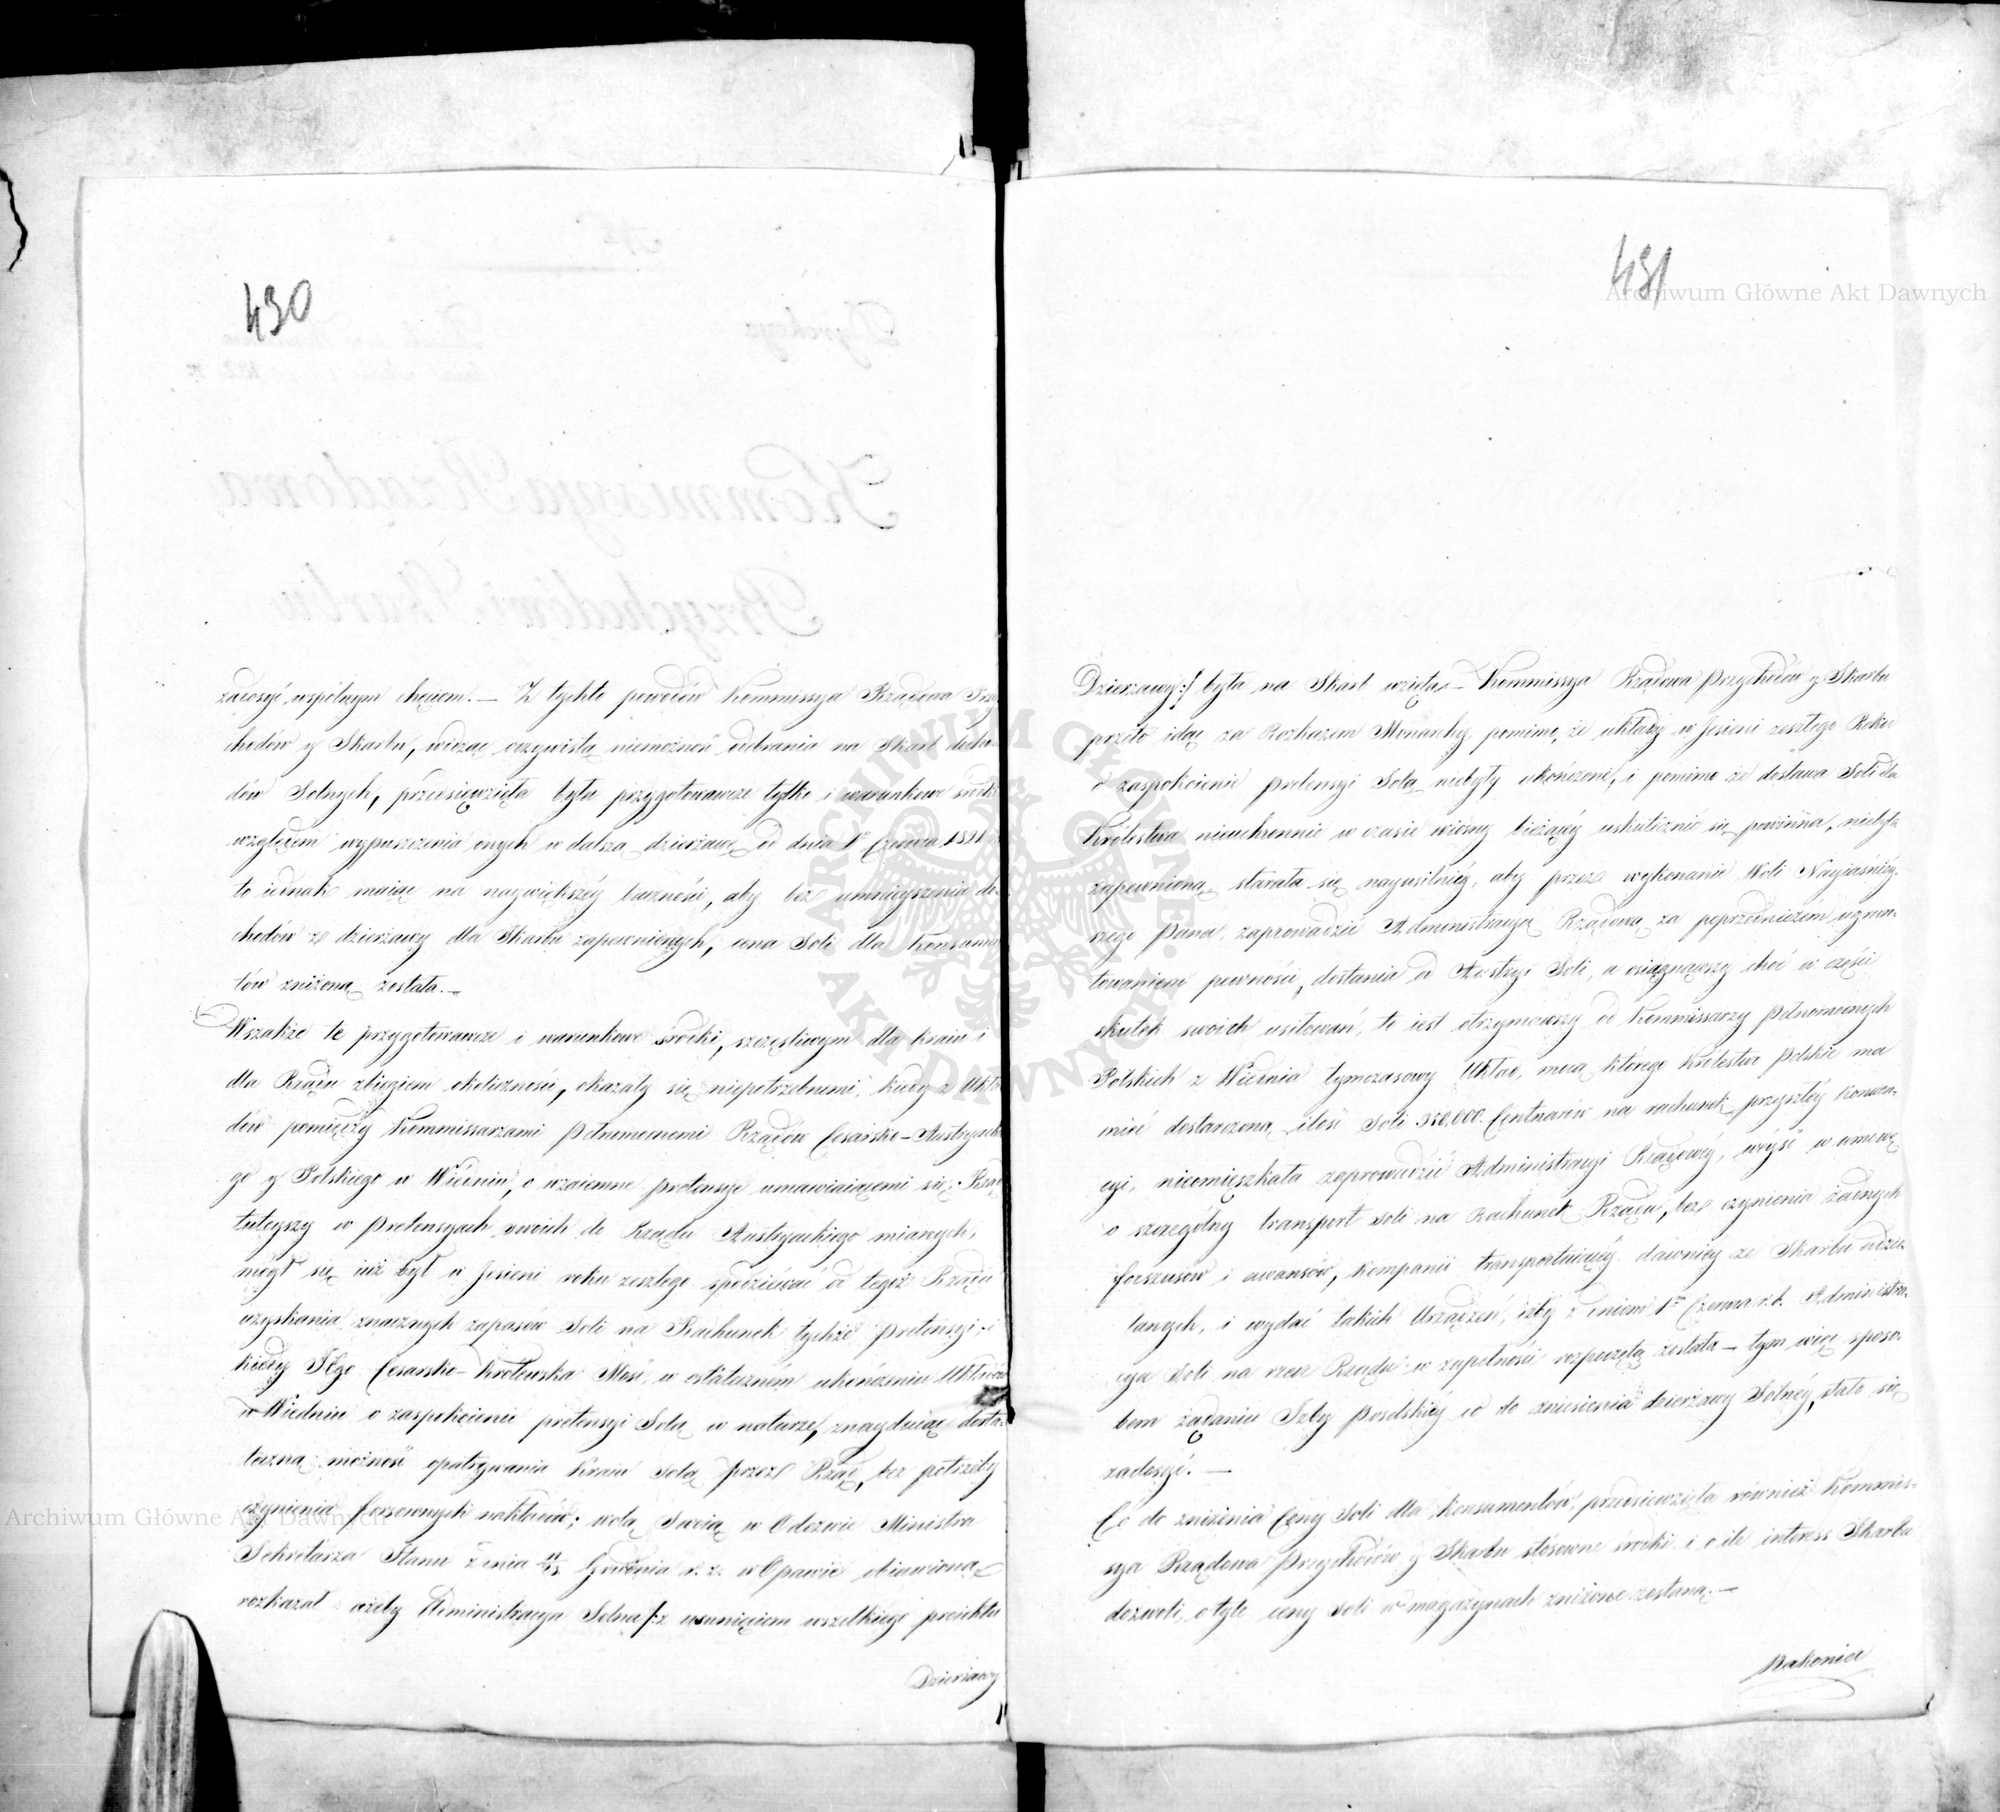 430
zadosyć wspólnym chęciom. — Z tychto powodów Kommissya Rządowa Przy-
chodów y Skarbu, widząc oczywistą niemożność odbrania na Skarb docho-
dów Solnych, przedsięwzięła była przygotowawcze tylko i warunkowe środki
względem wypuszczenia onych w dalszą dzierżawę od dnia 1o Czerwca 1821
to iednak maiąc na naywiększéy baczności, aby bez umnieyszenia do-
chodów z dzierżawy dla Skarbu zapewnionych, cena Soli dla Konsumen-
tów zniżoną została. —
Wszakże te przygotowawcze i warunkowe środki, szczęśliwym dla kraiu i
dla Rządu zbiegiem okoliczności, okazały się niepotrzebnemi, kiedy z Ukła-
dów pomiędzy Kommissarzami Pełnomocnemi Rządów Cesarsko-Austryackie-
go y Polskiego w Wiédniu, o wzaiemne pretensye umawiaiącemi się; Rząd
tuteyszy w Pretensyach swoich do Rządu Austryackiego mianych,
mógł się iuż był w Jesieni roku zeszłego spodziéwać od tegoż Rządu
uzyskania znacznych zapasów Soli na Rachunek tychże Pretensyi; i
kiedy Jego Cesarsko-Królewska Mość, w ostateczném ukończeniu Układów
w Wiedniu o zaspokoienie pretensyi Solą w naturze, znayduiąc dosta-
teczną możność opatrywania Kraiu Solą przez Rząd, bez potrzeby
czynienia forsownych nakładów; wolą Swoią w Odezwie Ministra
Sekretarza Stanu z dnia 11/23 Grudnia r. z. w Opawie obiawioną
rozkazał ażeby Administracya Solna /:z usunięciem wszelkiego proiektu
Dzierżawy
431
Dzierżawy:/ była na Skarb wzięta. — Kommissya Rządowa Przychodów y Skarbu
przeto idąc za Rozkazem Monarchy, pomimo, że układy w Jesieni zeszłego Roku
o zaspokoienie pretensyi Solą niebyły ukończone, i pomimo że dostawa Soli dla
Królestwa nieuchronnie w czasie wiosny bieżącéy uskutecznić się powinna, niebyła
zapewnioną, starała się nayusilniéy, aby przez wykonanie Woli Nayiaśniéy-
szego Pana, zaprowadzić Administracyą Rządową za poprzedniczém ugrun-
towaniem pewności, dostania od Austryi Soli, a osiągnąwszy choć w części
skutek swoich usiłowań, to iest otrzymawszy od Kommissarzy Pełnomocnych
Polskich z Wiednia tymczasowy Układ, mocą którego Królestwo Polskie ma
mieć dostarczoną ilość Soli 350,000. Centnarów na rachunek przyszłéy Konwen-
cyi, nieomieszkała zaprowadzić Administracyi Rządowéy, wéyść w umowę
o szczególny transport Soli na Rachunek Rządu, bez czynienia żadnych
forszusów i awansów, Kompanii transportuiącéy dawniéy ze Skarbu udzie-
lanych, i wydać takich Urządzeń, iżby z dniem 1m Czerwca r.b. Administra-
cya Soli na rzecz Rządu w zupełności rozpoczętą została — tym więc sposo-
bem żądaniu Izby Poselskiéy co do zniesienia dzierżawy Solnéy, stało się
zadosyć. —
Co do zniżenia Ceny Soli dla Konsumentów, przedsiewzięła również Kommis-
sya Rządowa Przychodów y Skarbu stósowne środki i o ile interess Skarbu
dozwoli, o tyle ceny Soli w magazynach zniżone zostaną. —
Archiwum Główne Akt Dawnych
Archiwum Główne Akt Dawnych
ARCHIWUM GŁÓWNE AKT DAWNYCH